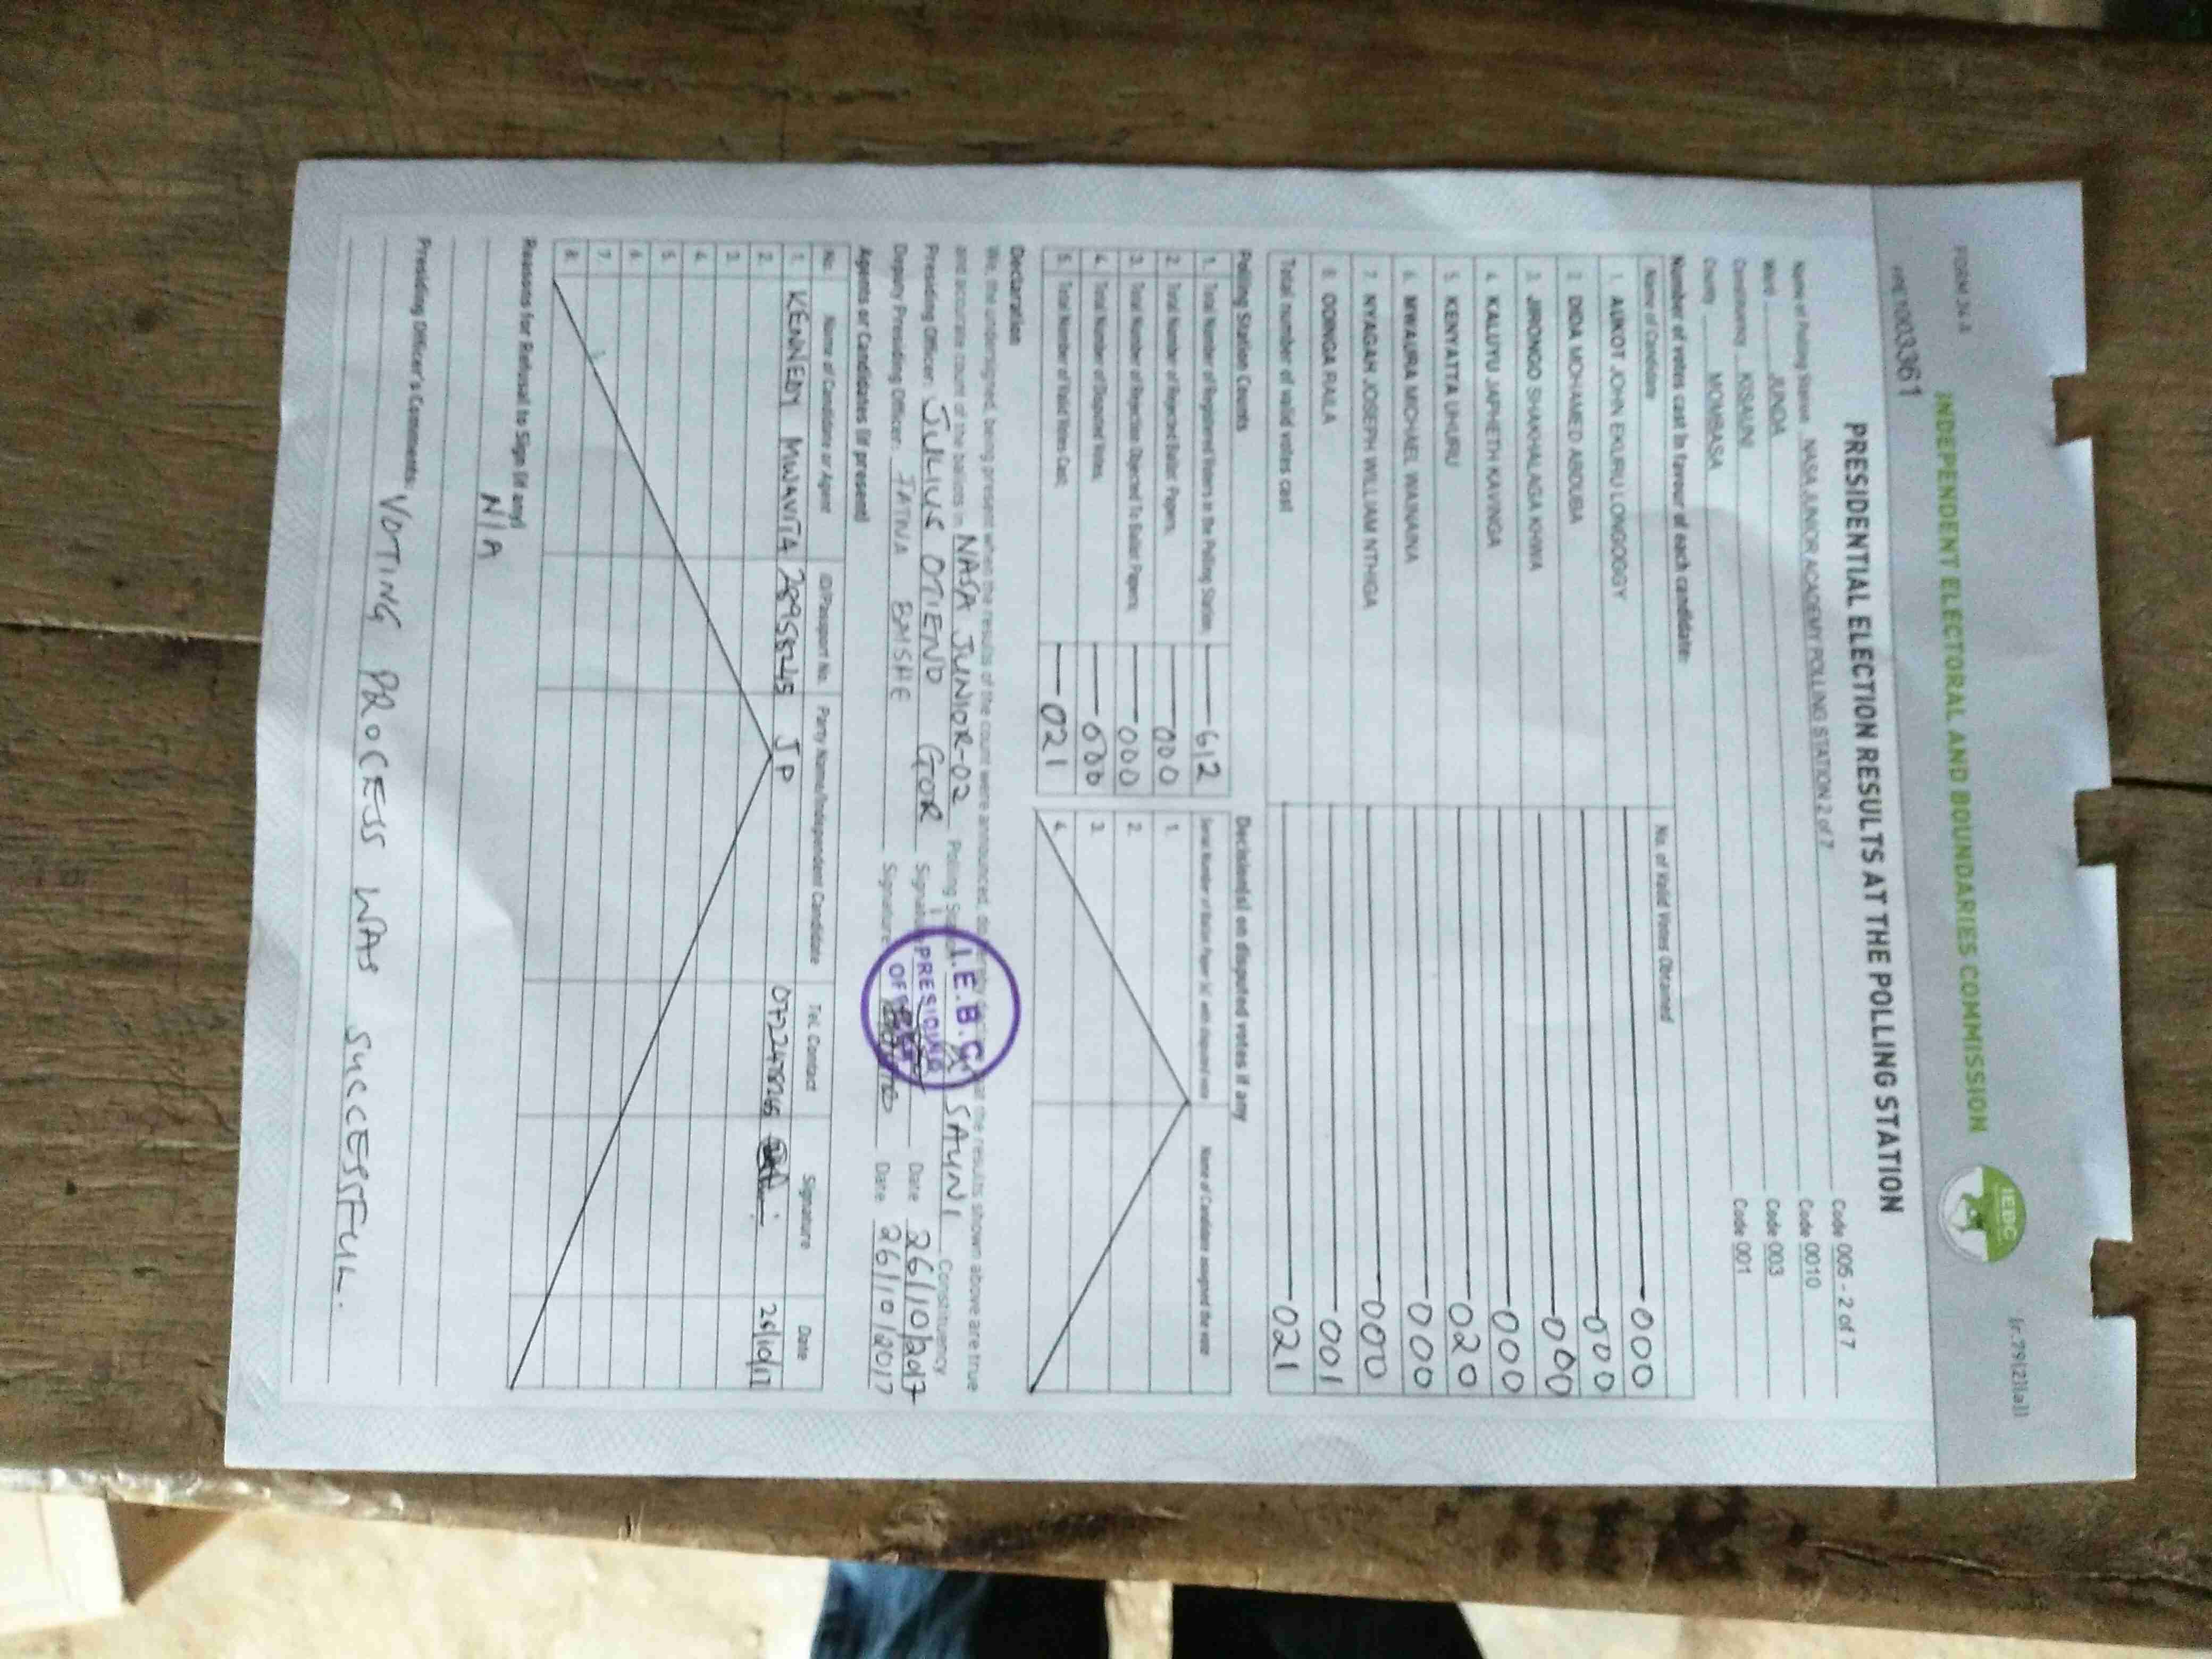 FORM 34 A
INDEPENDENT ELECTORAL AND BOUNDARIES COMMISSION
IEBC
PRESIDENTIAL ELECTION RESULTS AT THE POLLING STATION
Name of Polling Station NASA JUNIOR ACADEMY POLLING STATION 2 of 7 Code 005 - 2 of 7
Ward JUNDA Code 0010
Constituency KISAUNI Code 003
County MOMBASA Code 001
Number of votes cast in favour of each candidate:
Name of Candidate No. of Valid Votes Obtained
1. AUKOT JOHN EKURU LONGOGGY 000
2 DIDA MOHAMED ABDUBA 000
3. JIRONGO SHAKHALAGA KHWA 000
4. KALUYU JAPHETH KAVINGA 000
5. KENYATTA UHURU 020
6. MWAURA MICHAEL WAINAINA 000
7. NYAGAH JOSEPH WILLIAM NTHIGA 000
8. ODINGA RAILA 001
Total number of valid votes cast 021
Polling Station Counts
1. Total Number of Registered Voters in the Polling Station; 612
2. Total Number of Rejected Ballot Papers; 000
3. Total Number of Rejection Objected To Ballot Papers; 000
4. Total Number of Disputed Votes; 000
5. Total Number of Valid Votes Cast; 021
Decision(s) on disputed votes if any
Serial Number of Ballot Paper (s) with disputed vote Name of Candidate assigned the vote
1.
2.
3.
4.
Declaration
We, the undersigned, being present when the results of the count were announced, do the results shown above are true
and accurate count of the ballots in NASA JUNIOR-02 Polling SAUNI Constituency
Presiding Officer: JULIUS OTIENO GOR Date 26/10/2017
Deputy Presiding Officer: Signature Date 26/10/2017
I.E.B.C
PRESIDING
Agents or Candidates (if present)
No. Name of Candidate or Agent ID/Passport No. Party Name/Independent Candidate Tel. Contact Signature Date
1. KENNEDY MWAVITA 28958245 JP 26/10/17
2.
3.
4.
5.
6.
7.
8.
Reasons for Refusal to Sign (if any)
N/A
Presiding Officer's Comments:
VOTING PROCESS WAS SUCCESSFUL.